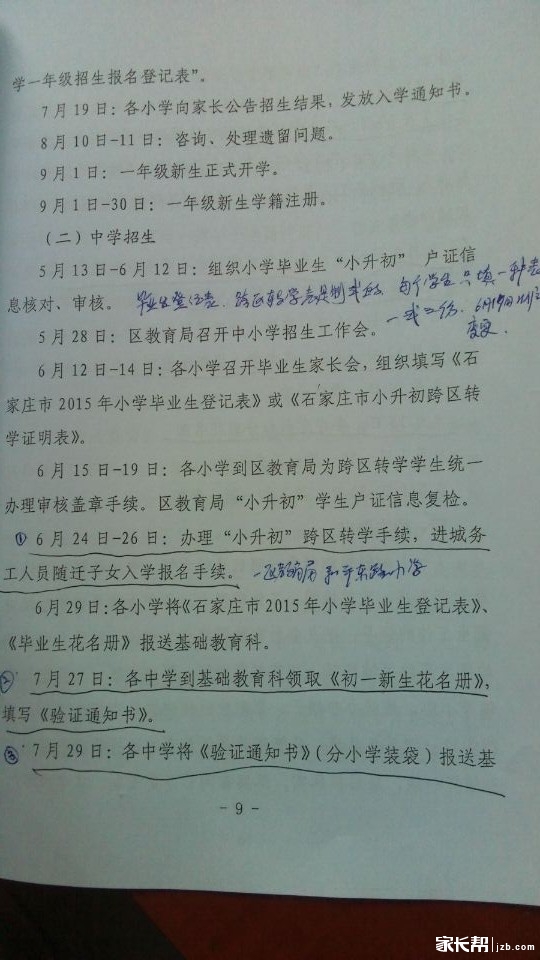 学一年级招生报名登记表”。
7月19日：各小学向家长公告招生结果，发放入学通知书。
8月10日-11日：咨询、处理遗留问题。
9月1日：一年级新生正式开学。
9月1日-30日：一年级新生学籍注册。
（二）中学招生
5月13日-6月12日：组织小学毕业生“小升初” 户证信
息核对、审核。 毕业生登记表、跨区转学表 每个学生只填一种表
一式二份
变更.
5月28日：区教育局召开中小学招生工作会。
6月12日-14日：各小学召开毕业生家长会，组织填写《石
家庄市2015年小学毕业生登记表》或《石家庄市小升初跨区转
学证明表》。
6月15日-19日：各小学到区教育局为跨区转学学生统一
办理审核盖章手续。区教育局“小升初”学生户证信息复检。
① 6月24日-26日：办理“小升初”跨区转学手续，进城务
工人员随迁子女入学报名手续。 区教育局 小学
6月29日：各小学将《石家庄市2015年小学毕业生登记表》、
《毕业生花名册》报送基础教育科。
② 7月27日：各中学到基础教育科领取《初一新生花名册》，
填写《验证通知书》。
③ 7月29日：各中学将《验证通知书》（分小学装袋）报送基
- 9 -
家长帮 jzb.com